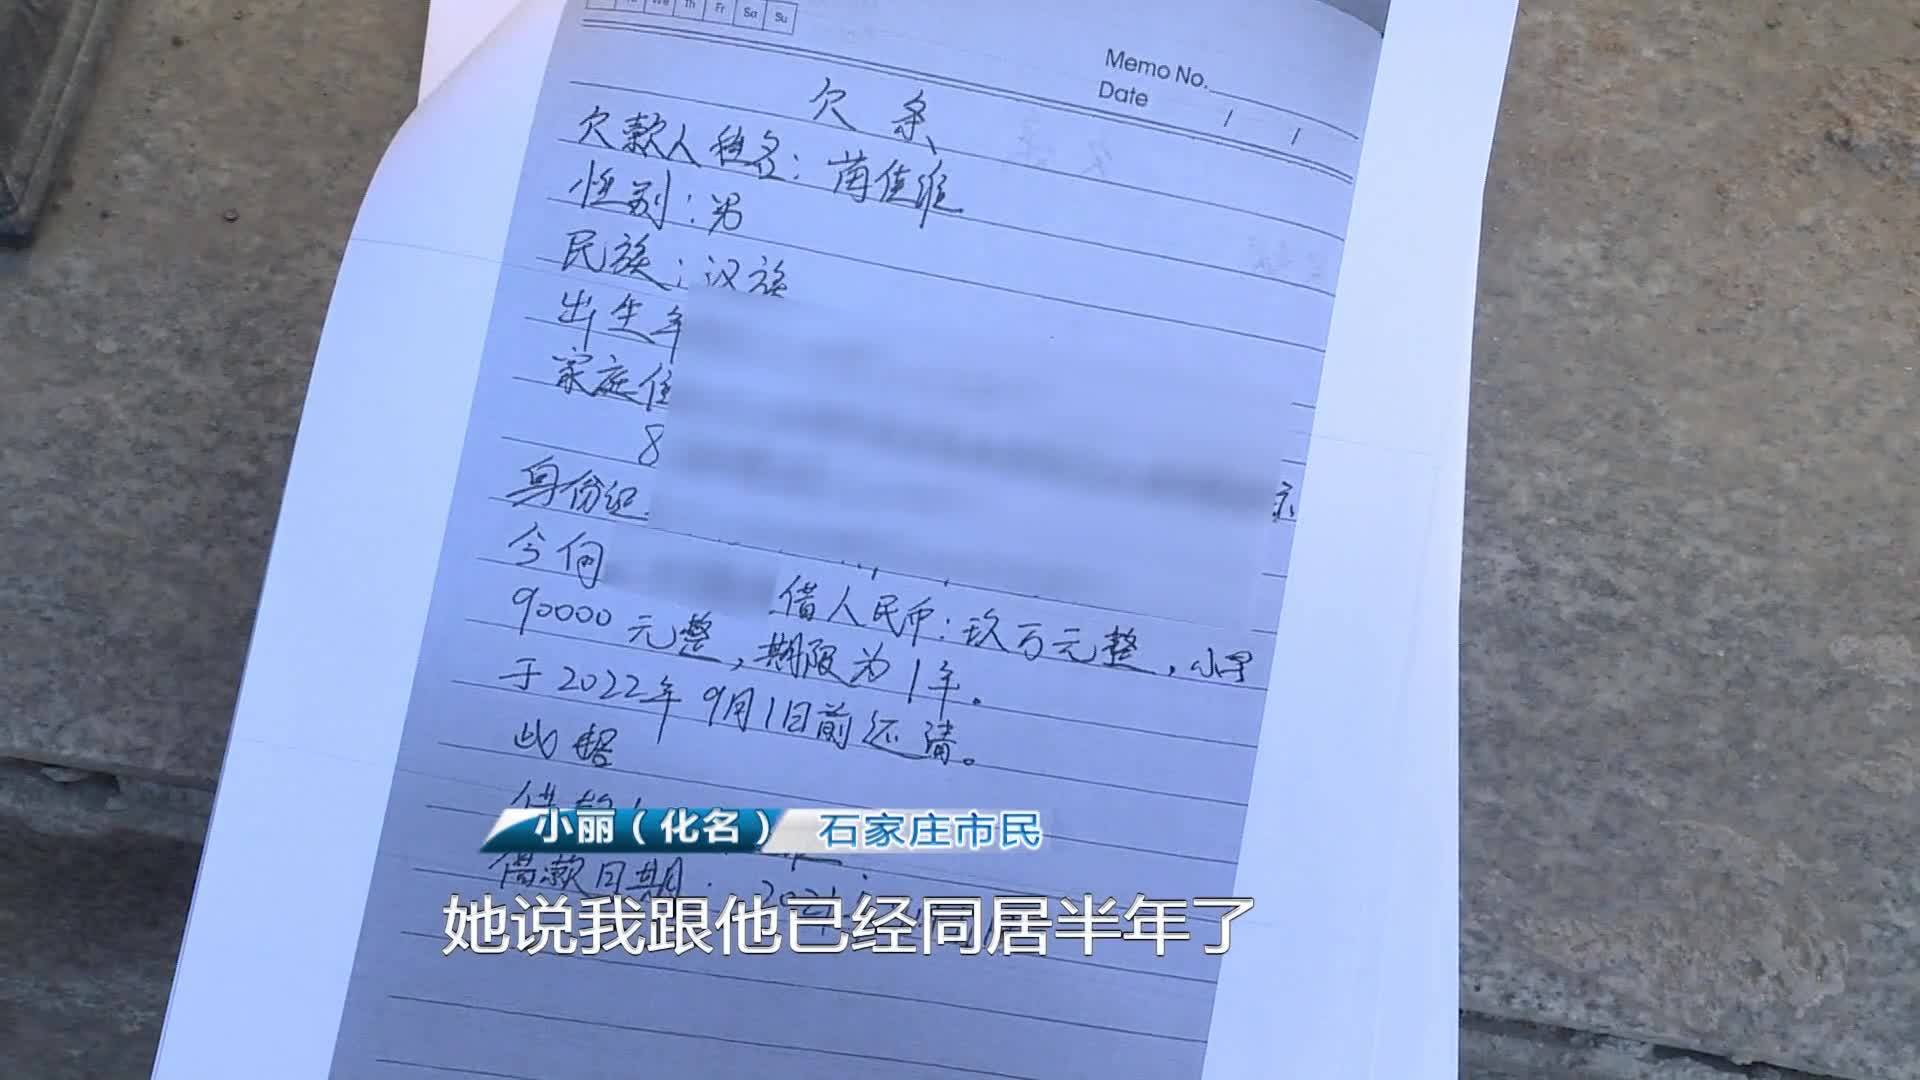 We Th Fr Sa Su
Memo No.
Date / /
欠条
欠款人姓名:苘佳维
性别:男
民族:汉族
出生年
家庭住
8
身份证
今向 借人民币:玖万元整,小写
90000元整,期限为1年。
于2022年9月1日前还清。
此据
小丽(化名) 石家庄市民
借款日期: 2021
她说我跟他已经同居半年了